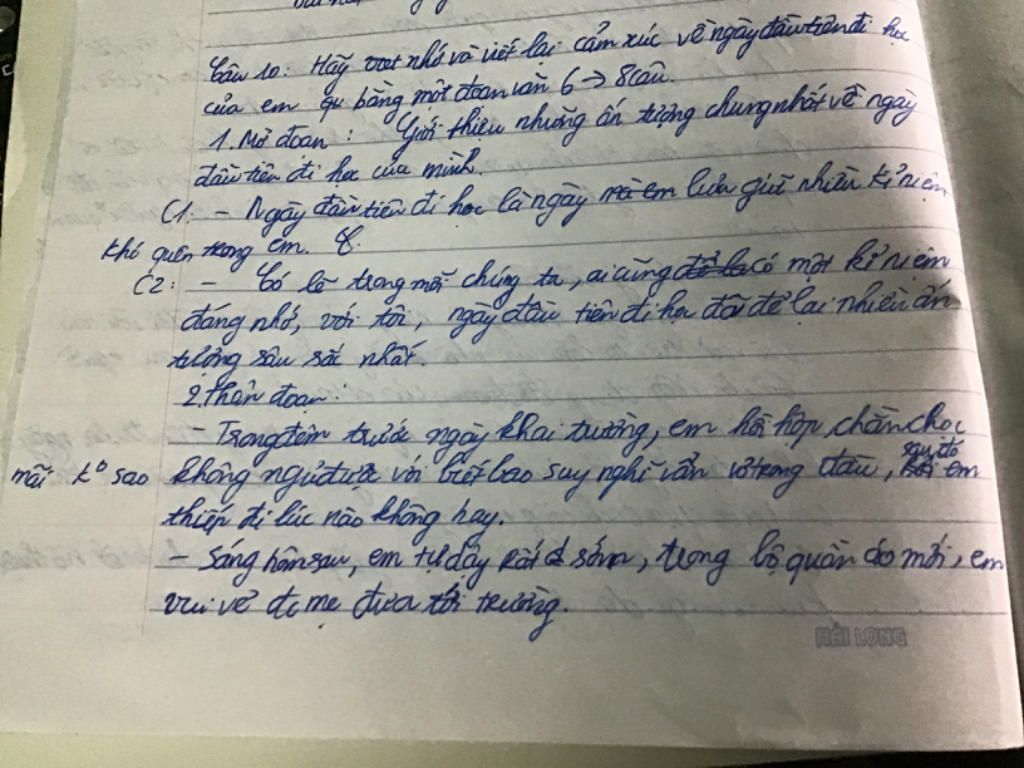 Câu 10: Hãy vợt nhớ và viết lại cảm xúc về ngày đầu tiên đi học
của em qu bằng một đoạn văn 6 → 8 câu.
1. Mở đoạn : Giới thiệu những ấn tượng chung nhất về ngày
đầu tiên đi học của mình.
C1: - Ngày đầu tiên đi học là ngày mà em lưu giữ nhiều kỉ niệm
khó quên trong em.
C2: - Có lẽ trong mỗi chúng ta, ai cũng để lại có một kỉ niệm
đáng nhớ, với tôi, ngày đầu tiên đi học đã để lại nhiều ấn
tượng sâu sắc nhất.
2. Thân đoạn:
- Trong đêm trước ngày khai trường, em hồi hộp, chằn chọc
mãi k° sao không ngủ được với biết bao suy nghĩ vẩn vơ trong đầu, sau đó em
thiếp đi lúc nào không hay.
- Sáng hôm sau, em tự dậy rất sớm, trong bộ quần áo mới, em
vui vẻ đc mẹ đưa tới trường.
HẢI LONG